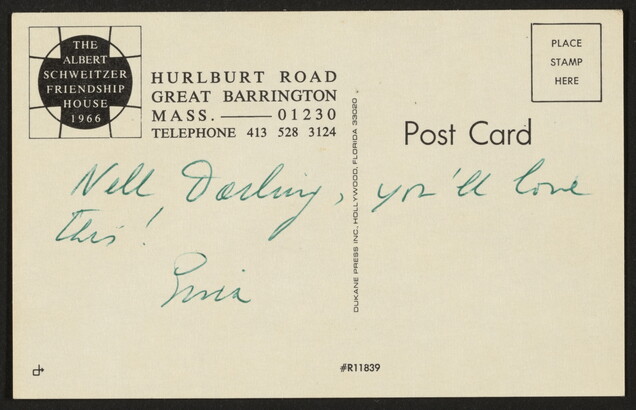 THE
ALBERT
SCHWEITZER
FRIENDSHIP
HOUSE
1966
HURLBURT ROAD
GREAT BARRINGTON
MASS. —— 01230
TELEPHONE 413 528 3124
PLACE
STAMP
HERE
Post Card
DUKANE PRESS INC. HOLLYWOOD, FLORIDA 33020
Nell Darling, you'll love
this!
#R11839